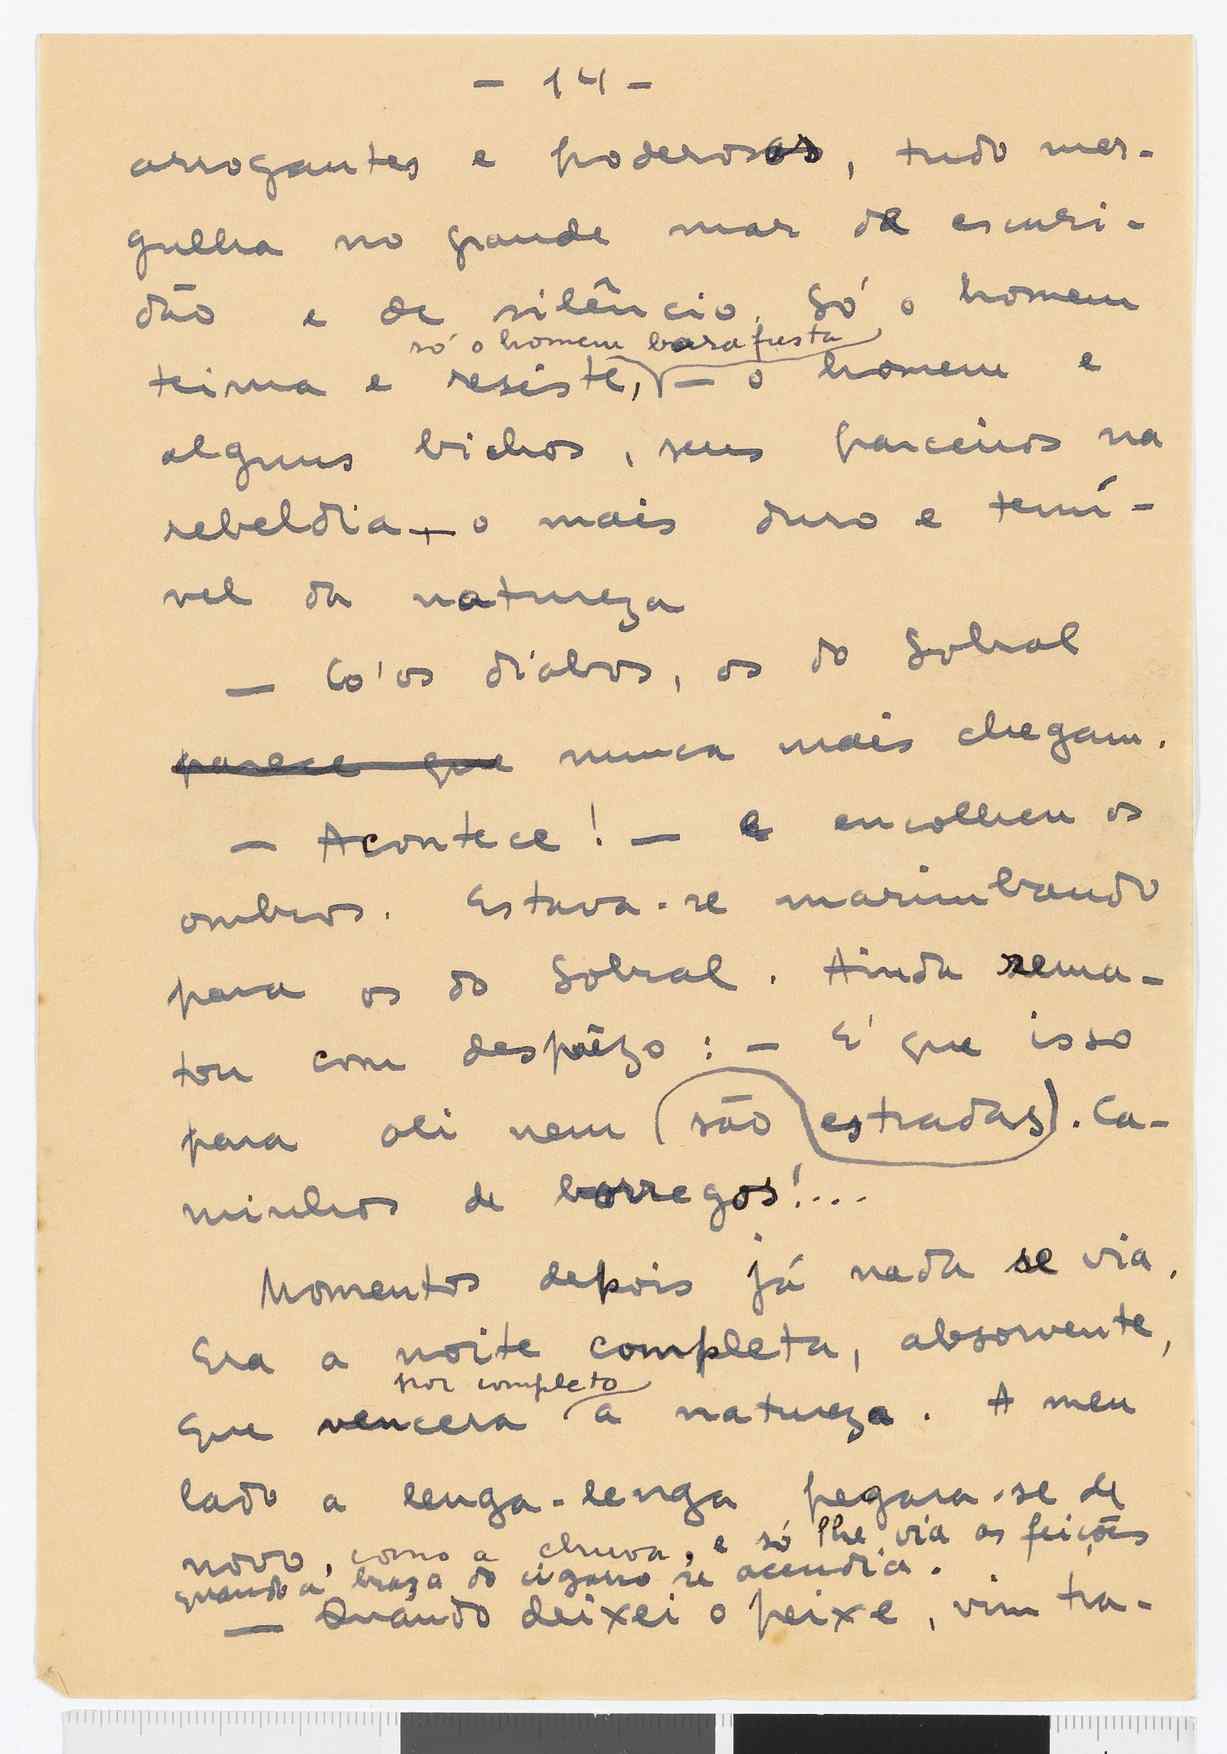 - 14 -
arrogantes e poderosos, tudo mer-
gulha no grande mar de escuri-
dão e de silêncio. Só o homem
só o homem barafusta
teima e resiste, — o homem e
alguns bichos, seus parceiros na
rebeldia — o mais duro e temí-
vel da natureza
— Co'os diabos, os do Sobral
parece que nunca mais chegam.
— Acontece! — e encolheu os
ombros. Estava-se marimbando
para os do Sobral. Ainda rema-
tou com desprêzo: — É que isso
para ali nem são estradas. Ca-
minhos de borregos!...
Momentos depois já nada se via.
Era a noite completa, absorvente,
por completo
que vencera a natureza. A meu
lado a lenga-lenga pegara-se de
novo, como a chuva, e só lhe via as feições
quando a braza do cigarro se acendia.
— Quando deixei o peixe, vim tra-